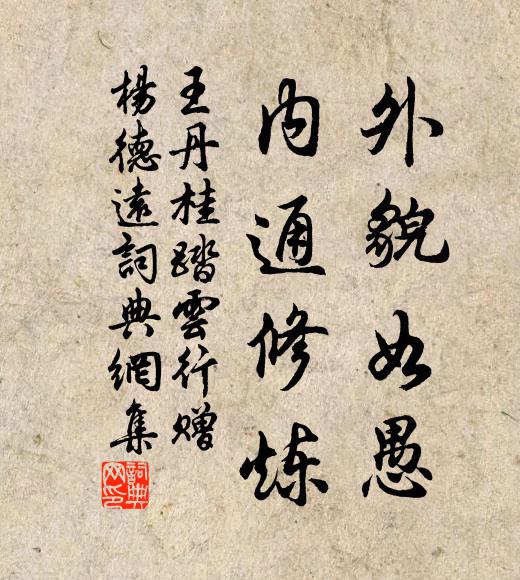 外貌如愚
内通修炼
王丹桂踏雲行贈
楊德遠詞典網集
詞典網印